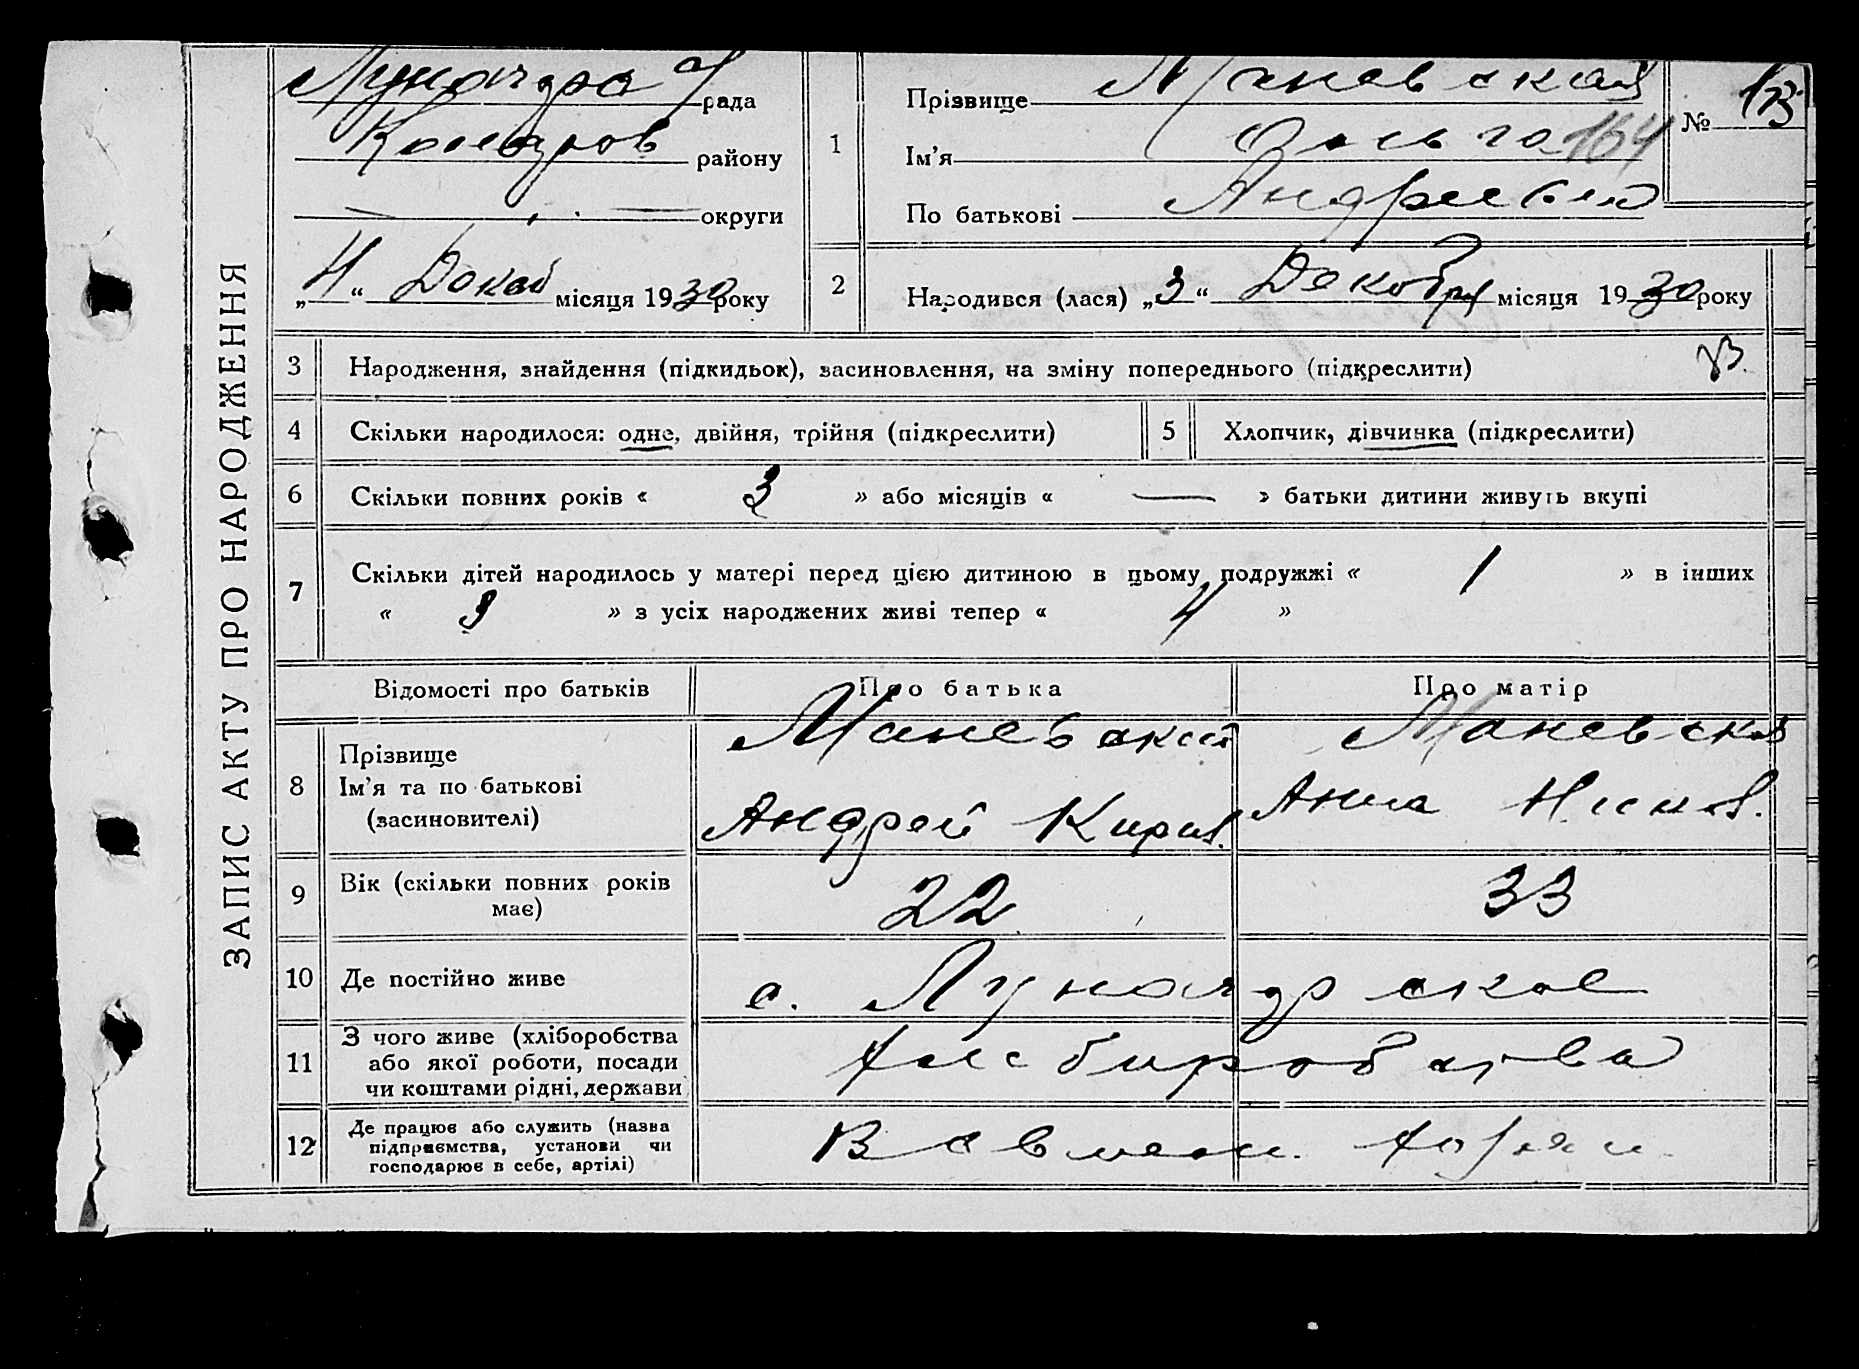 ЗАПИС АКТУ ПРО НАРОДЖЕННЯ
рада
району
округи
„ “ Декаб місяця 1930 року
1
Прізвище Маневская
Ім’я Ольга 164
По батькові Андреевна
№
2
Народився (лася) „3“ Декабря місяця 1930 року
3 Народження, знайдення (підкидьок), засиновлення, на зміну попереднього (підкреслити)
4 Скільки народилося: одне, двійня, трійня (підкреслити)
5 Хлопчик, дівчинка (підкреслити)
6 Скільки повних років « 3 » або місяців « — » батьки дитини живуть вкупі
7 Скільки дітей народилось у матері перед цією дитиною в цьому подружжі « 1 » в інших
« 3 » з усіх народжених живі тепер « 4 »
Відомості про батьків Про батька Про матір
8 Прізвище
Ім’я та по батькові
(засиновителі)
Маневский
Андрей Кирил.
Маневская
Анна
9 Вік (скільки повних років
має)
22
33
10 Де постійно живе
с. Луначарское
11 З чого живе (хліборобства
або якої роботи, посади
чи коштами рідні, держави
Хлеборобства
12 Де працює або служить (назва
підприємства, установи чи
господарює в себе, артілі)
В